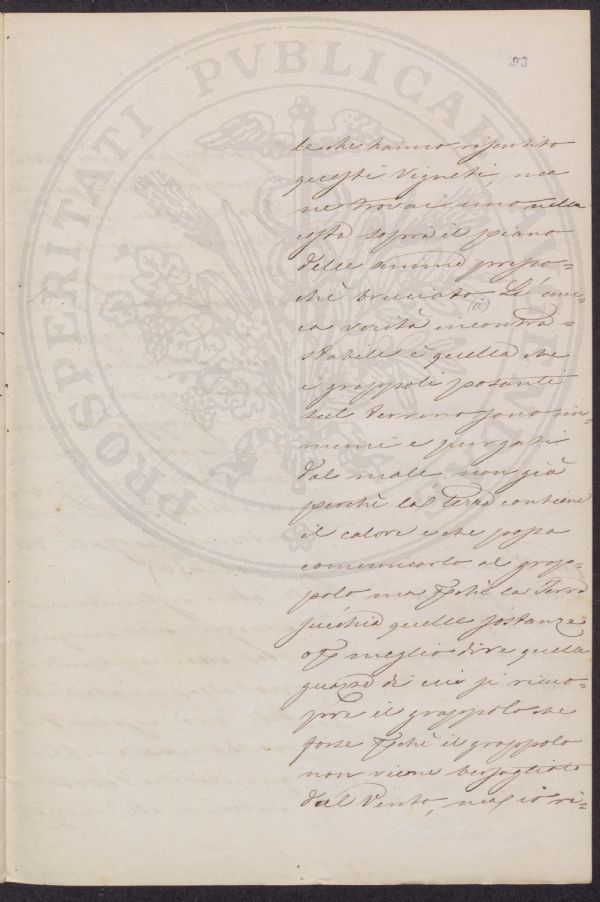 93
le che hanno rispettito
questi Vigneti, ma
ne trovai uno nella
costa sopra il piano
delle presso=
chè bruciato. L' uni=
ca verità incontra= (a)
stabile è quella che
i grappoli posanti
sul terreno sono im=
muni e purgati
dal male, non già
perchè la Terra contiene
il calore e che possa
comunicarlo al grap=
polo ma pchè la Terra
succhia quelle sostanze
o p meglio dire quella
di cui si rico=
pre il grappolo o se
forse pchè il grappolo
non viene bersagliato
dal Vento, ma io ri=
PROSPERITATI PVBLICAE AVGENDAE